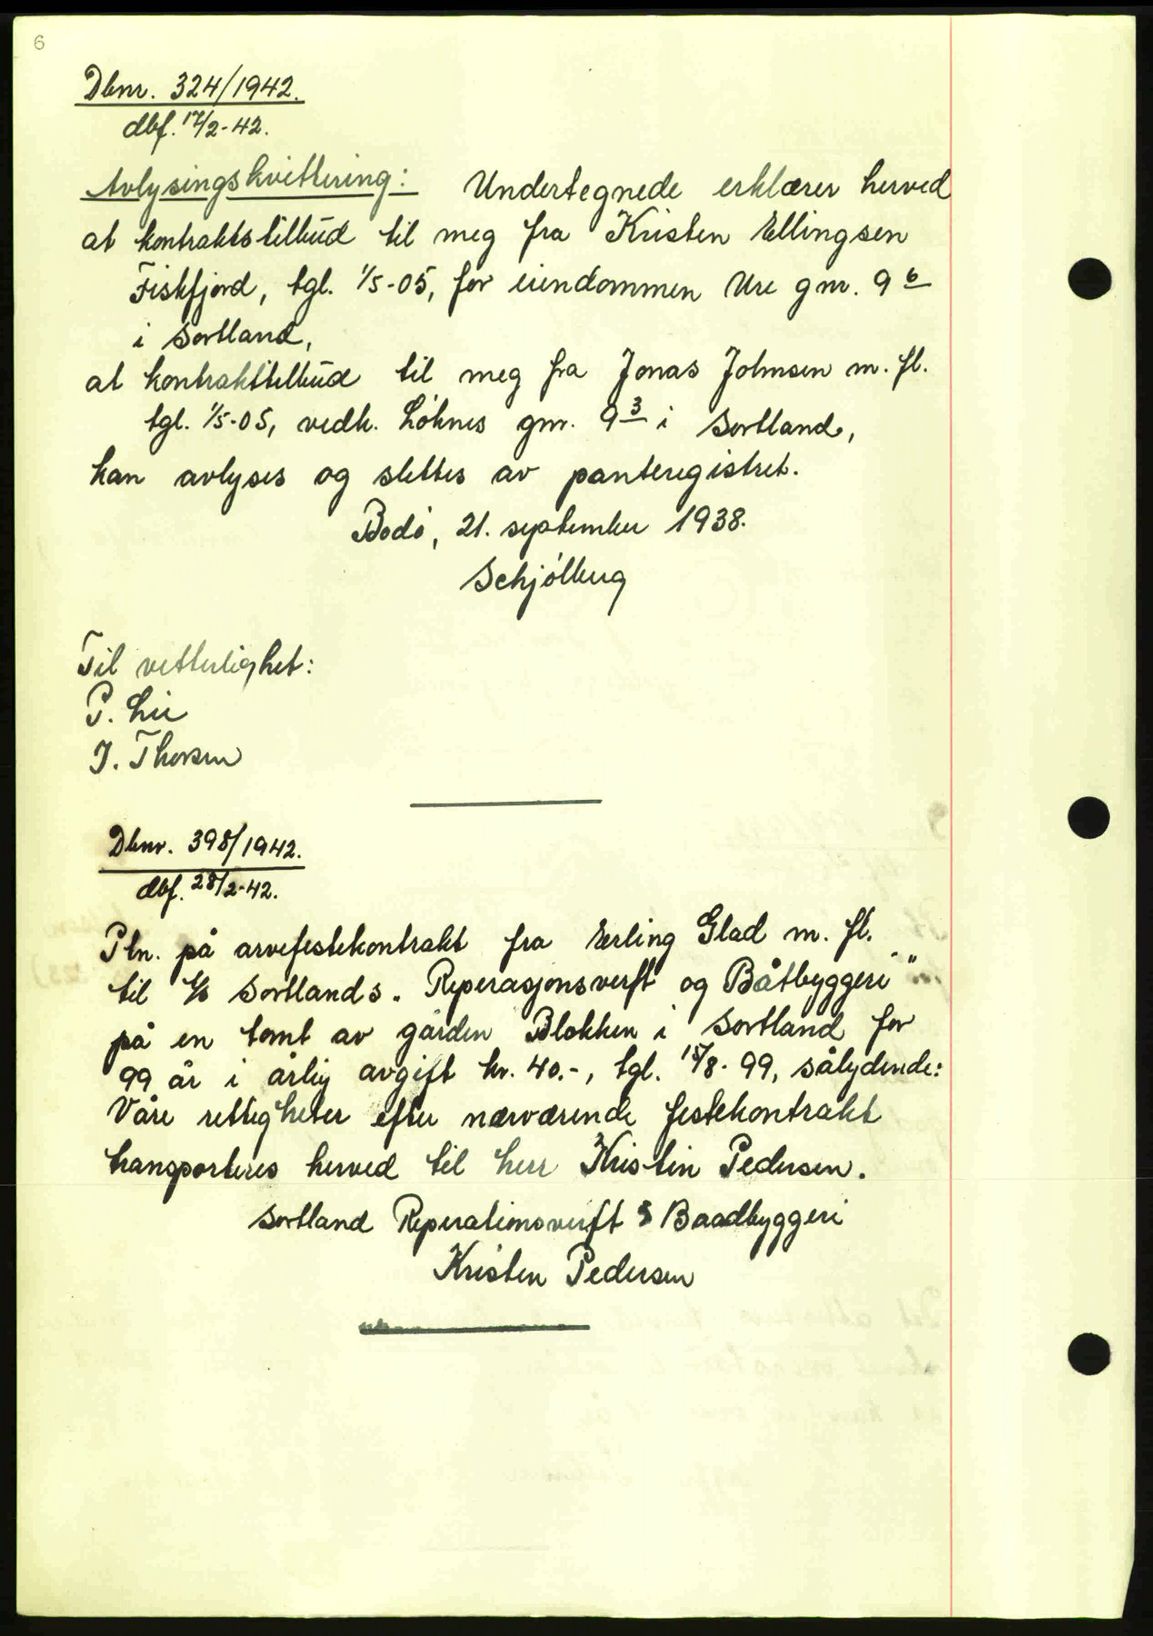 6
Dbnr. 324/1942.
dbf. 17/2-42.
Avlysingskvittering: Undertegnede erklærer herved
at kontraktstilbud til meg fra Kristen Ellingsen
Fiskfjord, tgl. 1/5-05, for eiendommen Ure gnr. 9 6
i Sortland,
at kontrakttilbud til meg fra Jonas Johnsen m. fl.
tgl. 1/5-05, vedk. Løknes gnr. 9 3 i Sortland,
kan avlyses og slettes av panteregistret.
Bodö, 21. september 1938.
Schjölberg
Til vitterlighet:
P. Lie
J. Thorsen
Dbnr. 398/1942.
dbf. 28/2-42.
Ptn. på arvefestekontrakt fra Erling Glad m. fl.
til A/S Sortlands "Reperasjonsverft og Båtbyggeri"
på en tomt av gården Blokken i Sortland for
99 år i årlig avgift kr. 40.-, tgl. 15/8-99, sålydende:
Våre rettigheter efter nærværende festekontrakt
transporteres herved til herr Kristin Pedersen.
Sortland Reperationsverft & Baadbyggeri
Kristen Pedersen